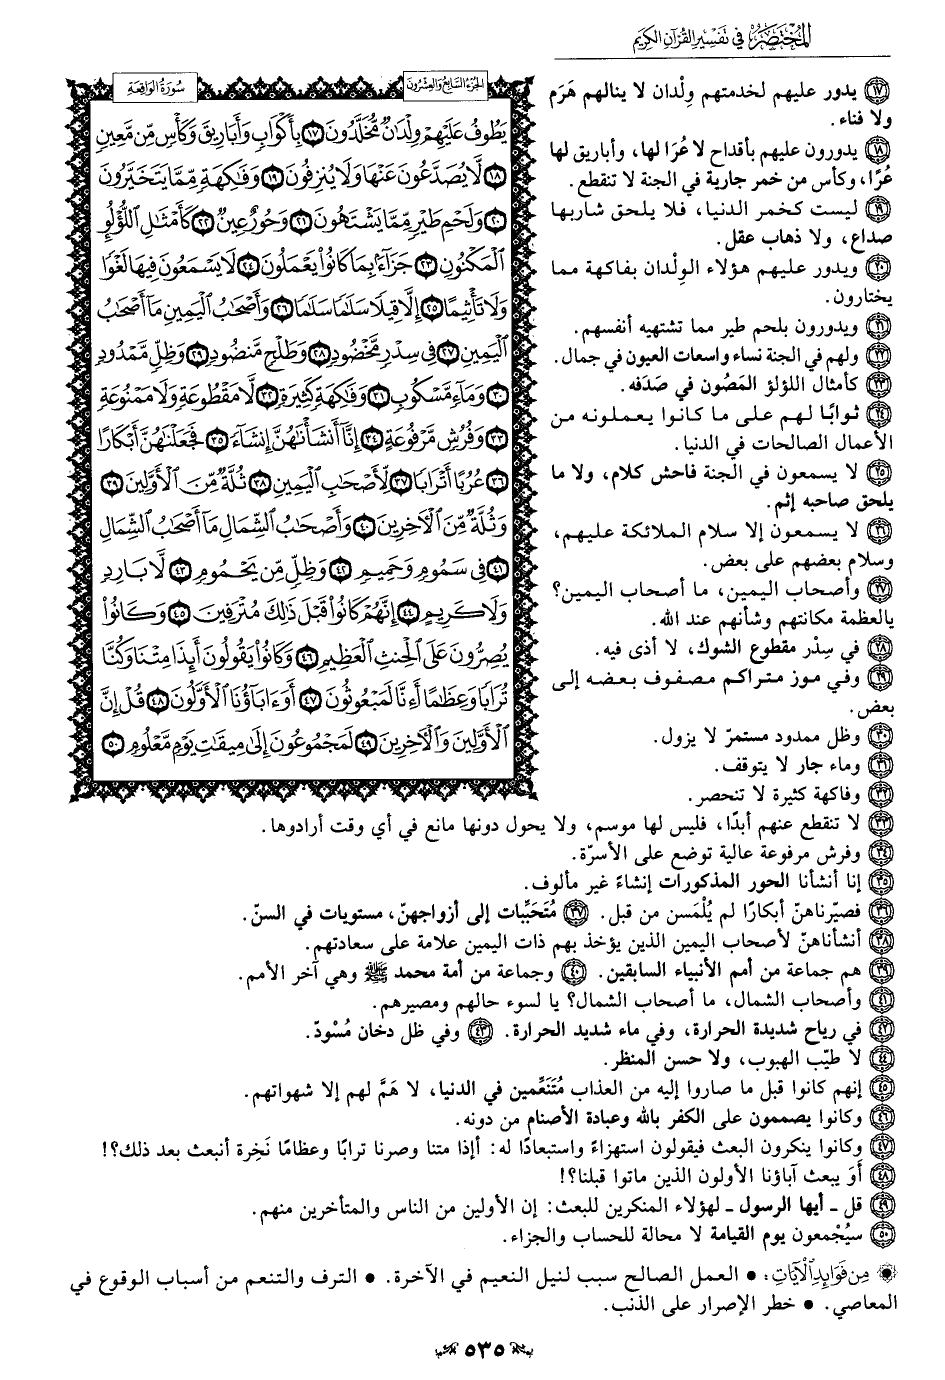 المختصر في تفسير القرآن الكريم
الجزء السابع والعشرون
سورة الواقعة
يَطُوفُ عَلَيْهِمْ وِلْدَٰنٌ مُّخَلَّدُونَ ١٧ بِأَكْوَابٍ وَأَبَارِيقَ وَكَأْسٍ مِّن مَّعِينٍ
١٨ لَّا يُصَدَّعُونَ عَنْهَا وَلَا يُنزِفُونَ ١٩ وَفَٰكِهَةٍ مِّمَّا يَتَخَيَّرُونَ
٢٠ وَلَحْمِ طَيْرٍ مِّمَّا يَشْتَهُونَ ٢١ وَحُورٌ عِينٌ ٢٢ كَأَمْثَٰلِ اللُّؤْلُؤِ
الْمَكْنُونِ ٢٣ جَزَآءً بِمَا كَانُوا۟ يَعْمَلُونَ ٢٤ لَا يَسْمَعُونَ فِيهَا لَغْوًا
وَلَا تَأْثِيمًا ٢٥ إِلَّا قِيلًا سَلَٰمًا سَلَٰمًا ٢٦ وَأَصْحَٰبُ الْيَمِينِ مَآ أَصْحَٰبُ
الْيَمِينِ ٢٧ فِى سِدْرٍ مَّخْضُودٍ ٢٨ وَطَلْحٍ مَّنضُودٍ ٢٩ وَظِلٍّ مَّمْدُودٍ
٣٠ وَمَآءٍ مَّسْكُوبٍ ٣١ وَفَٰكِهَةٍ كَثِيرَةٍ ٣٢ لَّا مَقْطُوعَةٍ وَلَا مَمْنُوعَةٍ
٣٣ وَفُرُشٍ مَّرْفُوعَةٍ ٣٤ إِنَّآ أَنشَأْنَٰهُنَّ إِنشَآءً ٣٥ فَجَعَلْنَٰهُنَّ أَبْكَارًا
٣٦ عُرُبًا أَتْرَابًا ٣٧ لِّأَصْحَٰبِ الْيَمِينِ ٣٨ ثُلَّةٌ مِّنَ الْأَوَّلِينَ ٣٩
وَثُلَّةٌ مِّنَ الْءَاخِرِينَ ٤٠ وَأَصْحَٰبُ الشِّمَالِ مَآ أَصْحَٰبُ الشِّمَالِ
٤١ فِى سَمُومٍ وَحَمِيمٍ ٤٢ وَظِلٍّ مِّن يَحْمُومٍ ٤٣ لَّا بَارِدٍ
وَلَا كَرِيمٍ ٤٤ إِنَّهُمْ كَانُوا۟ قَبْلَ ذَٰلِكَ مُتْرَفِينَ ٤٥ وَكَانُوا۟
يُصِرُّونَ عَلَى الْحِنثِ الْعَظِيمِ ٤٦ وَكَانُوا۟ يَقُولُونَ أَئِذَا مِتْنَا وَكُنَّا
تُرَابًا وَعِظَٰمًا أَءِنَّا لَمَبْعُوثُونَ ٤٧ أَوَءَابَآؤُنَا الْأَوَّلُونَ ٤٨ قُلْ إِنَّ
الْأَوَّلِينَ وَالْءَاخِرِينَ ٤٩ لَمَجْمُوعُونَ إِلَىٰ مِيقَٰتِ يَوْمٍ مَّعْلُومٍ ٥٠
١٧ يدور عليهم لخدمتهم وِلْدان لا ينالهم هَرَم
ولا فناء.
١٨ يدورون عليهم بأقداح لا عُرًا لها، وأباريق لها
عُرًا، وكأس من خمر جارية في الجنة لا تنقطع.
١٩ ليست كخمر الدنيا، فلا يلحق شاربها
صداع، ولا ذهاب عقل.
٢٠ ويدور عليهم هؤلاء الوِلْدان بفاكهة مما
يختارون.
٢١ ويدورون بلحم طير مما تشتهيه أنفسهم.
٢٢ ولهم في الجنة نساء واسعات العيون في جمال.
٢٣ كأمثال اللؤلؤ المَصُون في صَدَفه.
٢٤ ثوابًا لهم على ما كانوا يعملونه من
الأعمال الصالحات في الدنيا.
٢٥ لا يسمعون في الجنة فاحش كلام، ولا ما
يلحق صاحبه إثم.
٢٦ لا يسمعون إلا سلام الملائكة عليهم،
وسلام بعضهم على بعض.
٢٧ وأصحاب اليمين، ما أصحاب اليمين؟
يالعظمة مكانتهم وشأنهم عند الله.
٢٨ في سِدْر مقطوع الشوك، لا أذى فيه.
٢٩ وفي موز متراكم مصفوف بعضه إلى
بعض.
٣٠ وظل ممدود مستمرّ لا يزول.
٣١ وماء جار لا يتوقف.
٣٢ وفاكهة كثيرة لا تنحصر.
٣٣ لا تنقطع عنهم أبدًا، فليس لها موسم، ولا يحول دونها مانع في أي وقت أرادوها.
٣٤ وفرش مرفوعة عالية توضع على الأسرّة.
٣٥ إنا أنشأنا الحور المذكورات إنشاءً غير مألوف.
٣٦ فصيّرناهنّ أبكارًا لم يُلْمَسن من قبل. ٣٧ مُتَحَبِّبات إلى أزواجهنّ، مستويات في السنّ.
٣٨ أنشأناهنّ لأصحاب اليمين الذين يؤخذ بهم ذات اليمين علامة على سعادتهم.
٣٩ هم جماعة من أمم الأنبياء السابقين. ٤٠ وجماعة من أمة محمد ﷺ وهي آخر الأمم.
٤١ وأصحاب الشمال، ما أصحاب الشمال؟ يا لسوء حالهم ومصيرهم.
٤٢ في رياح شديدة الحرارة، وفي ماء شديد الحرارة. ٤٣ وفي ظل دخان مُسْودّ.
٤٤ لا طيّب الهبوب، ولا حسن المنظر.
٤٥ إنهم كانوا قبل ما صاروا إليه من العذاب مُتَنَعِّمين في الدنيا، لا هَمَّ لهم إلا شهواتهم.
٤٦ وكانوا يصممون على الكفر بالله وعبادة الأصنام من دونه.
٤٧ وكانوا ينكرون البعث فيقولون استهزاءً واستبعادًا له: أإذا متنا وصرنا ترابًا وعظامًا نَخِرة أنبعث بعد ذلك؟!
٤٨ أَوَ يبعث آباؤنا الأولون الذين ماتوا قبلنا؟!
٤٩ قل ـ أيها الرسول ـ لهؤلاء المنكرين للبعث: إن الأولين من الناس والمتأخرين منهم.
٥٠ سيُجْمعون يوم القيامة لا محالة للحساب والجزاء.
من فوائد الآيات: • العمل الصالح سبب لنيل النعيم في الآخرة. • الترف والتنعم من أسباب الوقوع في
المعاصي. • خطر الإصرار على الذنب.
٥٣٥